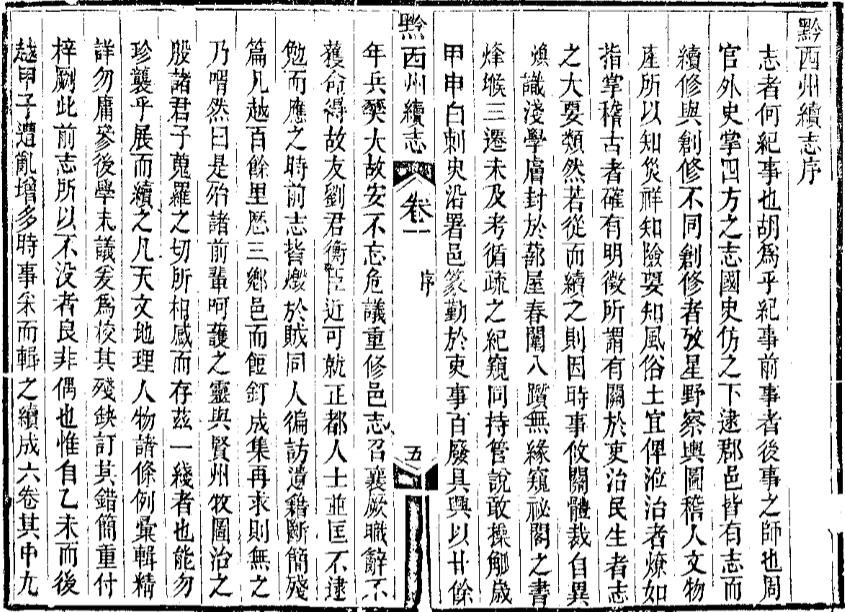 黔西州續志序
志者何紀事也胡爲乎紀事前事者後事之師也周
官外史掌四方之志國史仿之下逮郡邑皆有志而
續修與創修不同創修者攷星野察輿圖稽人文物
產所以知災祥知險要知風俗土宜俾涖治者燎如
指掌稽古者確有明徵所謂有關於吏治民生者志
之大要類然若從而續之則因時事攸關體裁自異
煥識淺學膚封於蔀屋春闈八躓無緣窺祕閣之書
烽堠三遷未及考循疏之紀窺同持管說敢操觚歲
甲申白刺史沿署邑篆勤於吏事百廢具興以廿餘
黔西州續志
卷一
序
五
年兵燹大故安不忘危議重修邑志召襄厥職辭不
獲命得故友劉君衡臣近可就正都人士並匡不逮
勉而應之時前志皆燬於賊同人徧訪遺籍斷簡殘
篇凡越百餘里歷三鄉邑而飣餖成集再求則無之
乃喟然曰是殆諸前輩呵護之靈與賢州牧圖治之
殷諸君子蒐羅之切所相感而存茲一綫者也能勿
珍襲乎展而續之凡天文地理人物諸條例彙輯精
詳勿庸參後學末議爰爲校其殘缺訂其錯簡重付
梓劂此前志所以不没者良非偶也惟自乙未而後
越甲子遭亂增多時事采而輯之續成六卷其中九